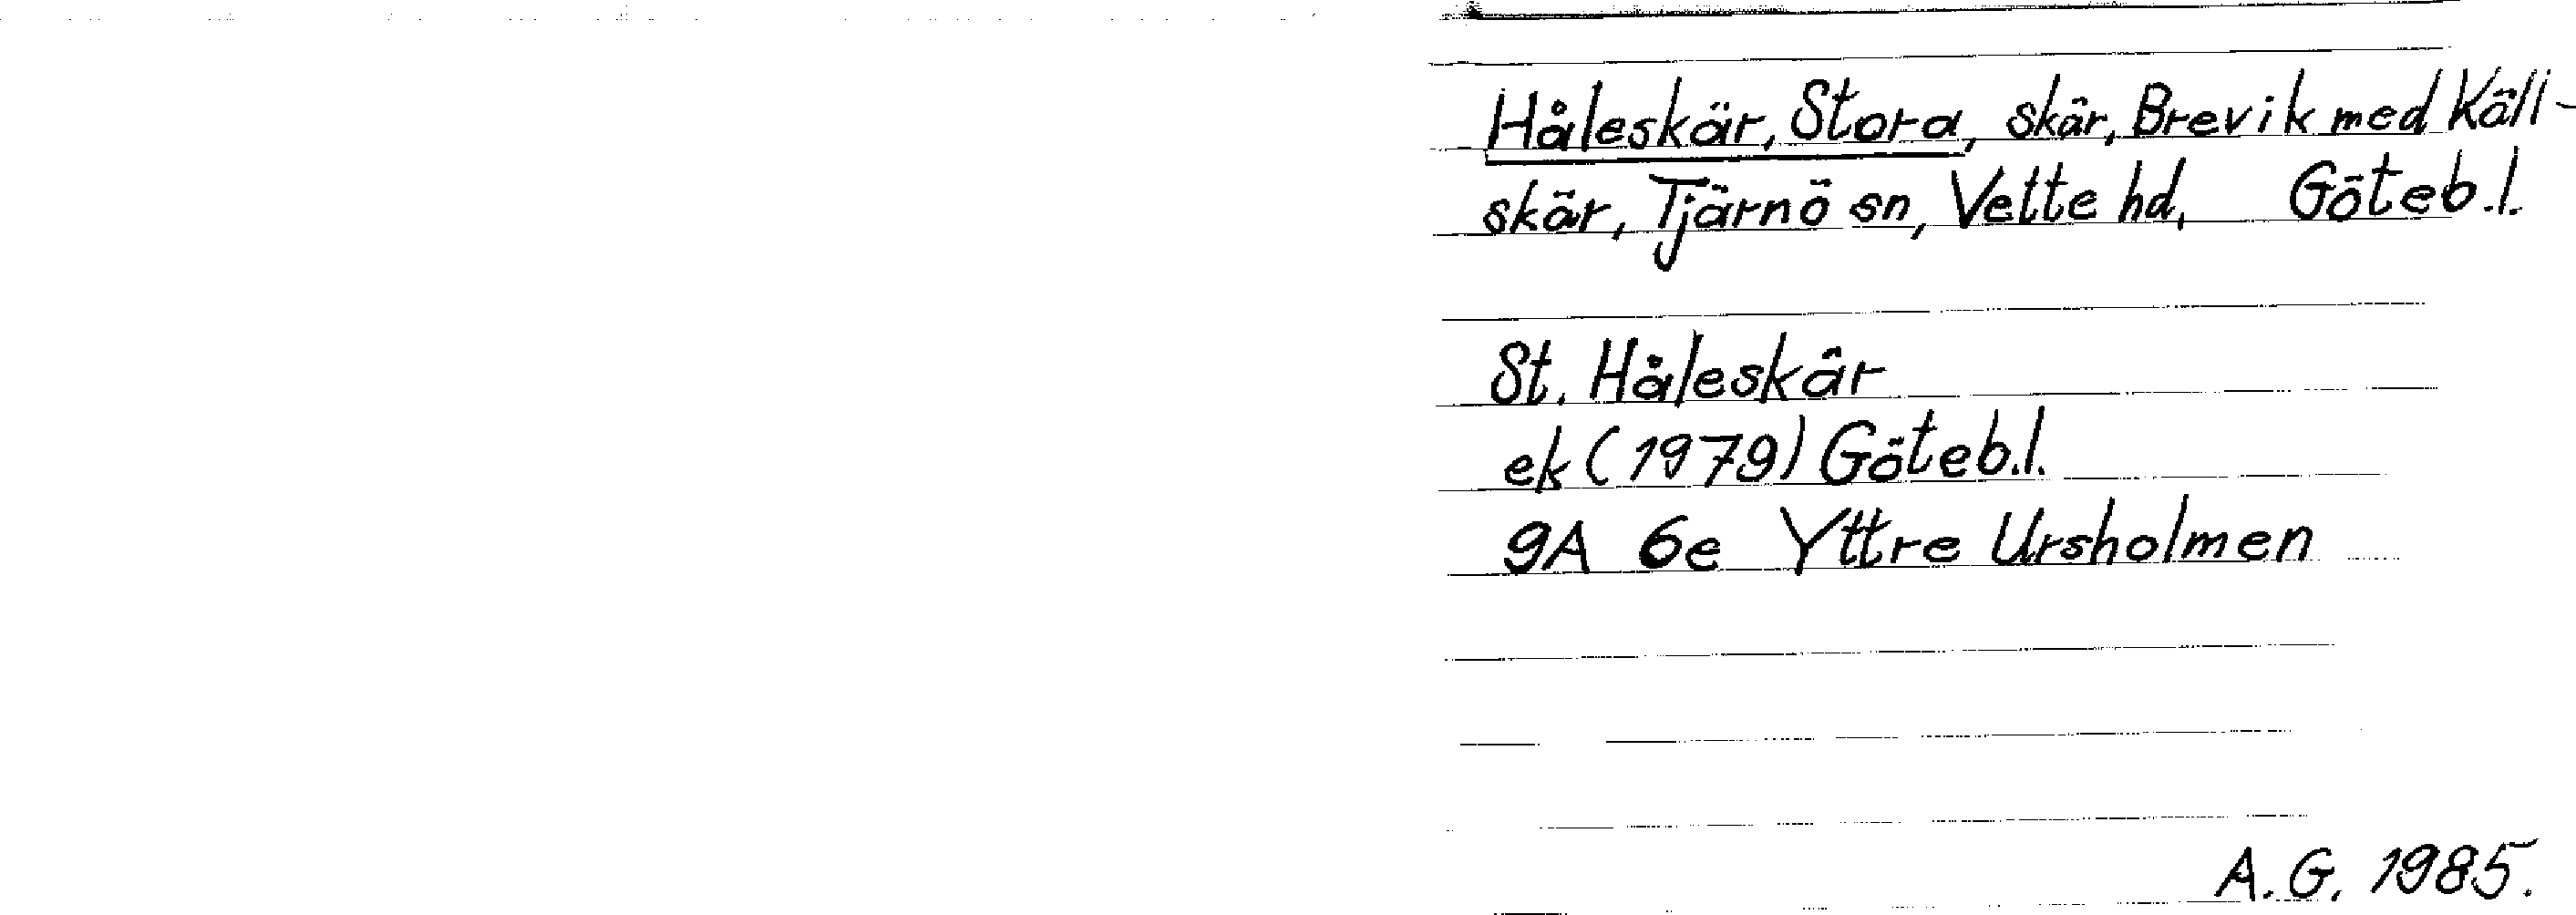 Håleskär, Stora, skär, Brevik med Käll-
skär, Tjärnö sn, Vette hd, Göteb.l.
St. Håleskär
ek (1979) Göteb.l.
9A 6e Yttre Ursholmen
A.G. 1985.